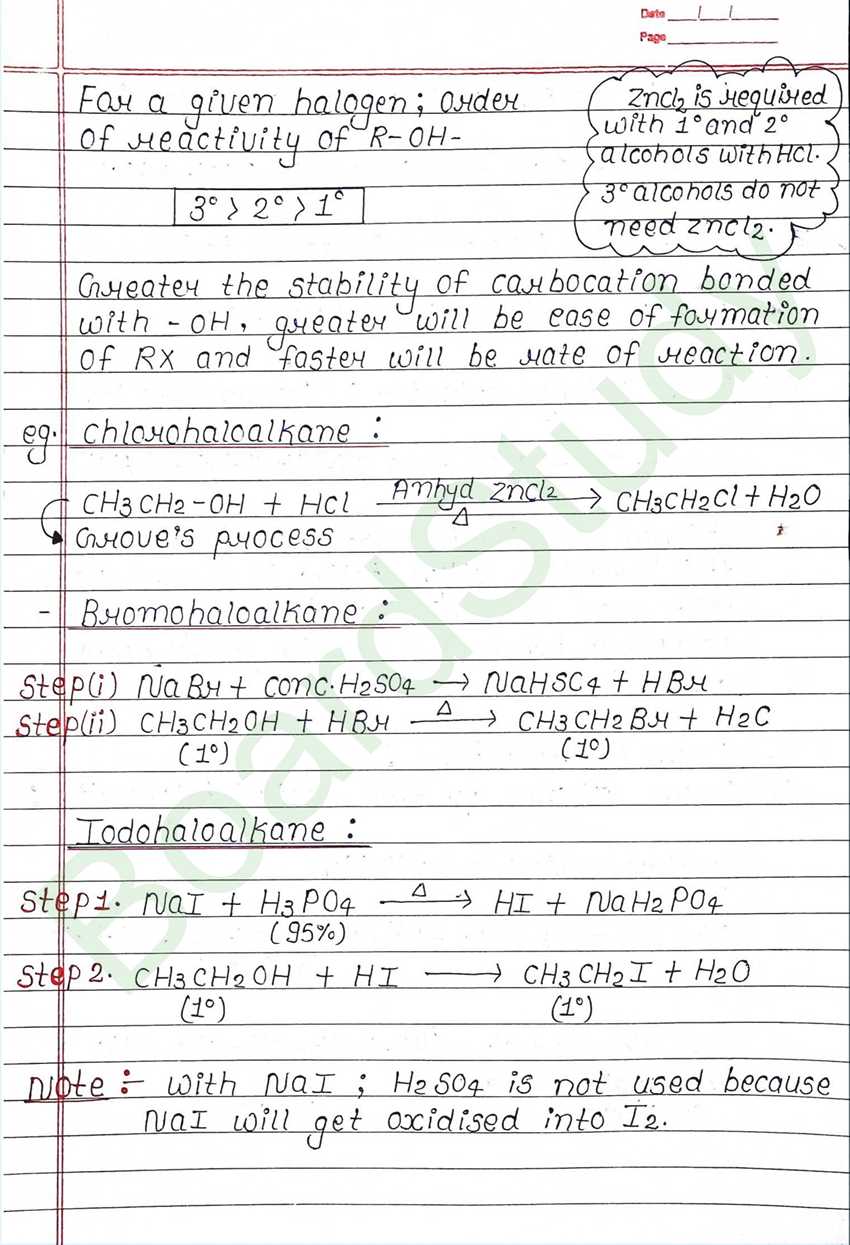 Date / /
Page
For a given halogen; order
of reactivity of R-OH-
3° > 2° > 1°
ZnCl2 is required
with 1° and 2°
alcohols with HCl.
3° alcohols do not
need ZnCl2.
Greater the stability of carbocation bonded
with - OH, greater will be ease of formation
of RX and faster will be rate of reaction.
eg. Chlorohaloalkane :
CH3CH2-OH + HCl Anhyd ZnCl2 Δ → CH3CH2Cl + H2O
Grove's process
- Bromohaloalkane :
Step(i) NaBr + conc. H2SO4 → NaHSC4 + HBr
Step(ii) CH3CH2OH + HBr Δ → CH3CH2Br + H2C
(1°) (1°)
Iodohaloalkane :
Step 1. NaI + H3PO4 Δ → HI + NaH2PO4
(95%)
Step 2. CH3CH2OH + HI → CH3CH2I + H2O
(1°) (1°)
Note :- with NaI ; H2SO4 is not used because
NaI will get oxidised into I2.
BoardStudy